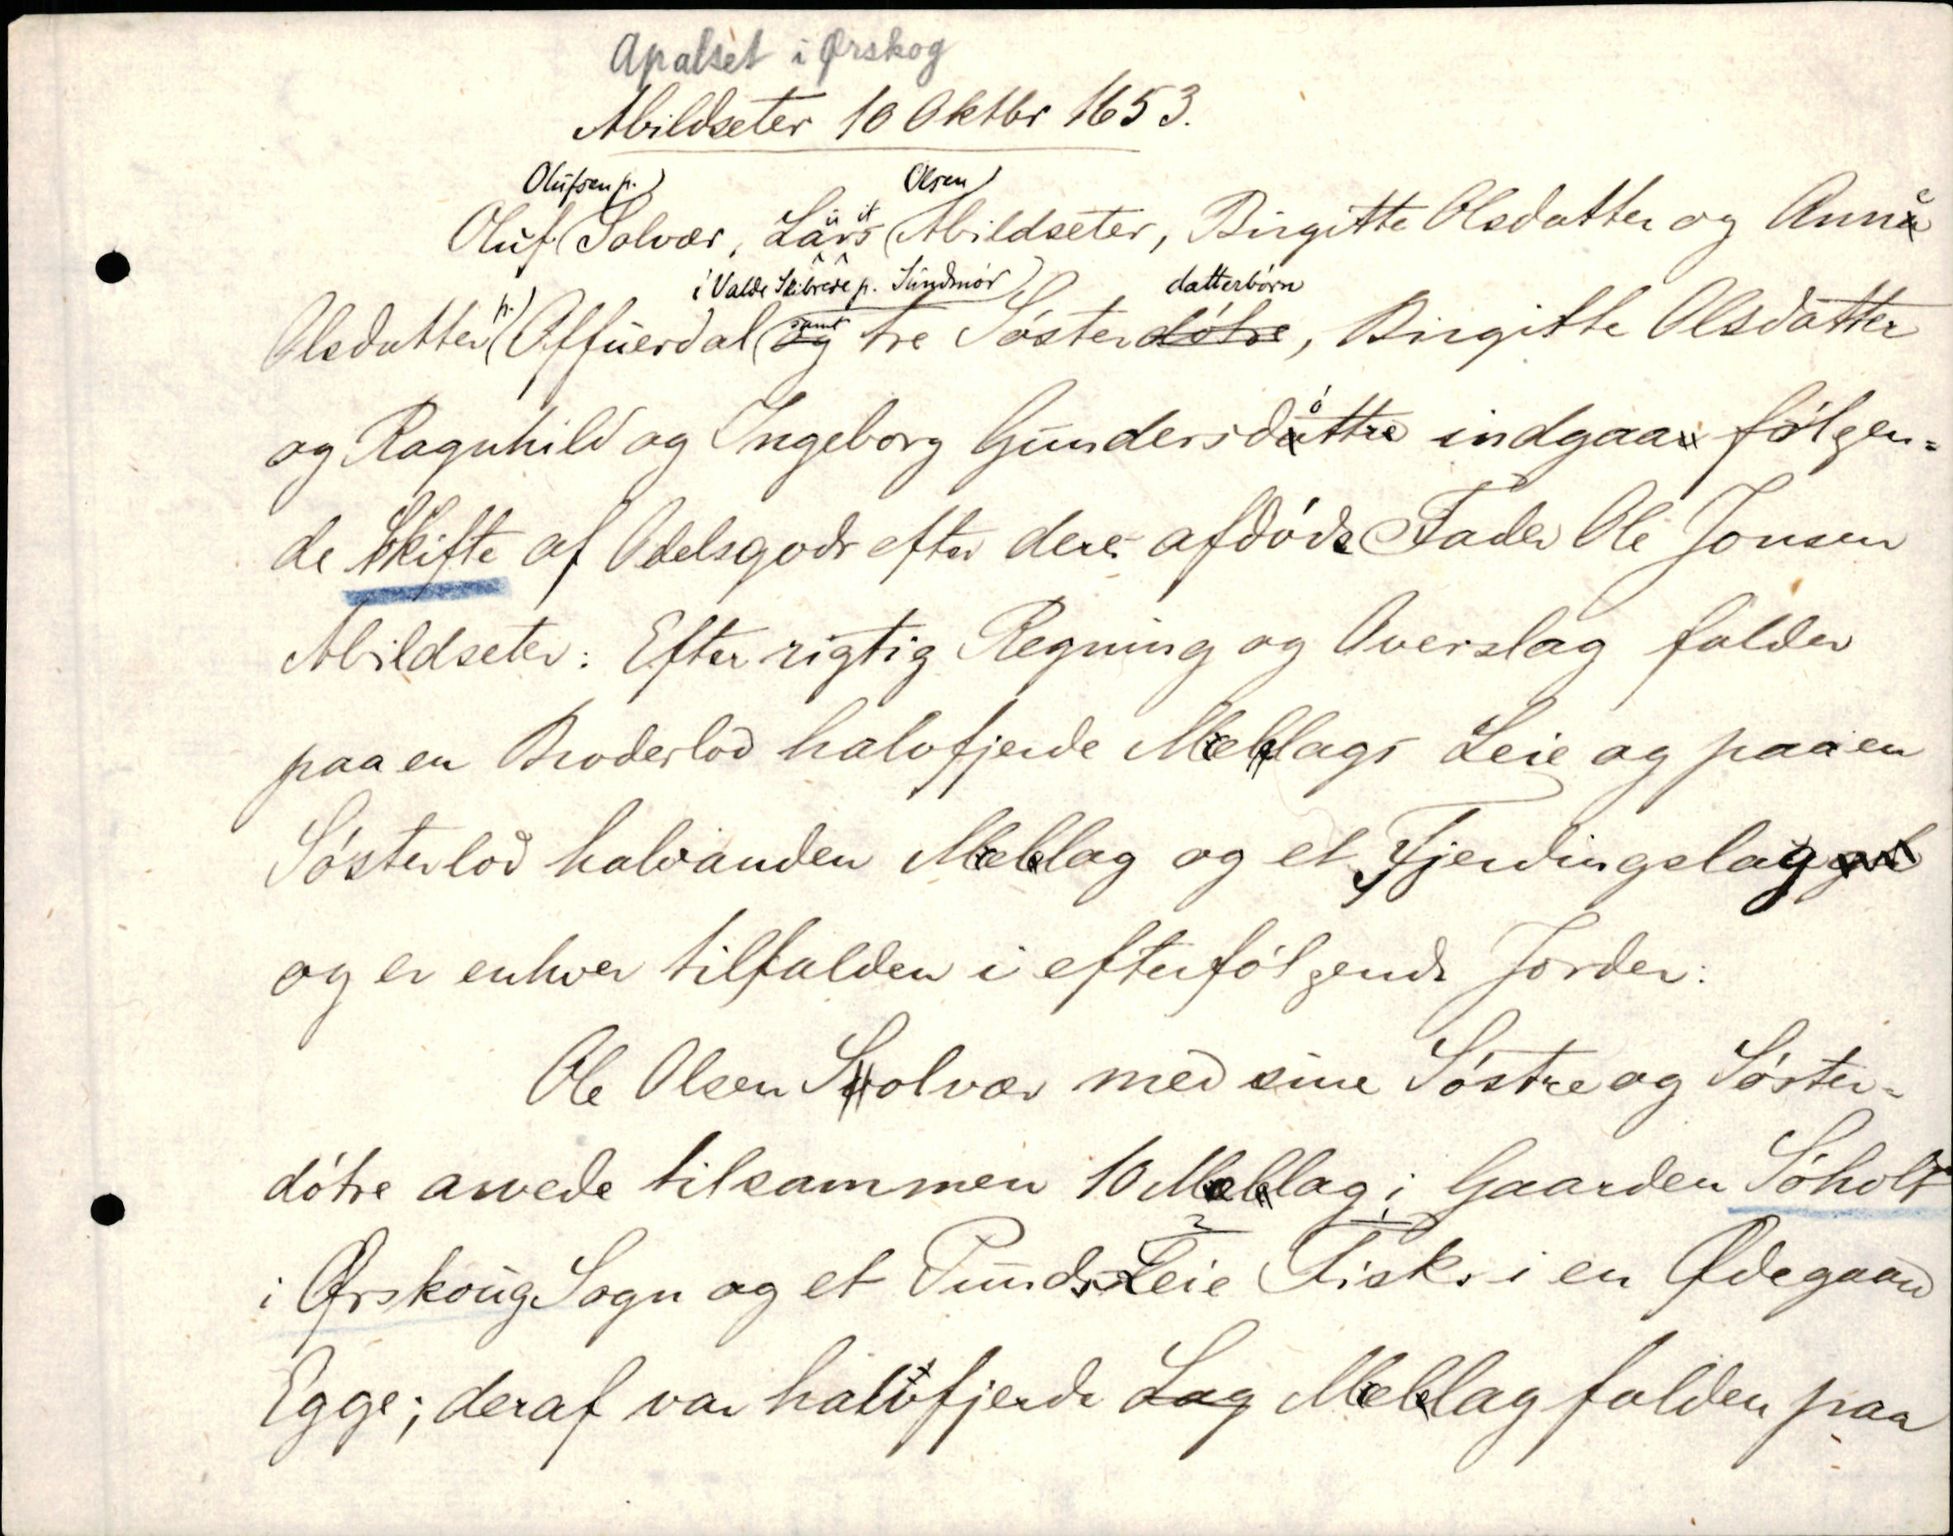 Apalset i Ørskog
Abildseter 10 Oktbr 1653.
Olufsen p. Olsen
Oluf Solvær, Lars Abildseter, Birgitte Olsdatter og Anne
i Valde Skibrede p. Sundmør datterbørn
Olsdatter p. Affuerdal og samt tre Søsterdøtre, Birgitte Olsdatter
og Ragnhild og Ingeborg Gundersdøttre indgaar følgen-
de Skifte af Odelsgods efter deres afdøde Fader Ole Jonsen
Abildseter: Efter rigtig Regning og Overslag falder
paa en Broderlod halvfjerde Mellags Leie og paa en
Søsterlod halvanden Mellag og et Fjerdingslag
og er enhver tilfalden i efterfølgende Jorder:
Ole Olsen Solvær med sine Søstre og Søster-
døtre arvede tilsammen 10 Mellag i Gaarden Søholt
i Ørskoug Sogn og et Punds Leie Fisks i en Ødegaard
Egge; deraf var halvfjerde Lag Mellag falden paa